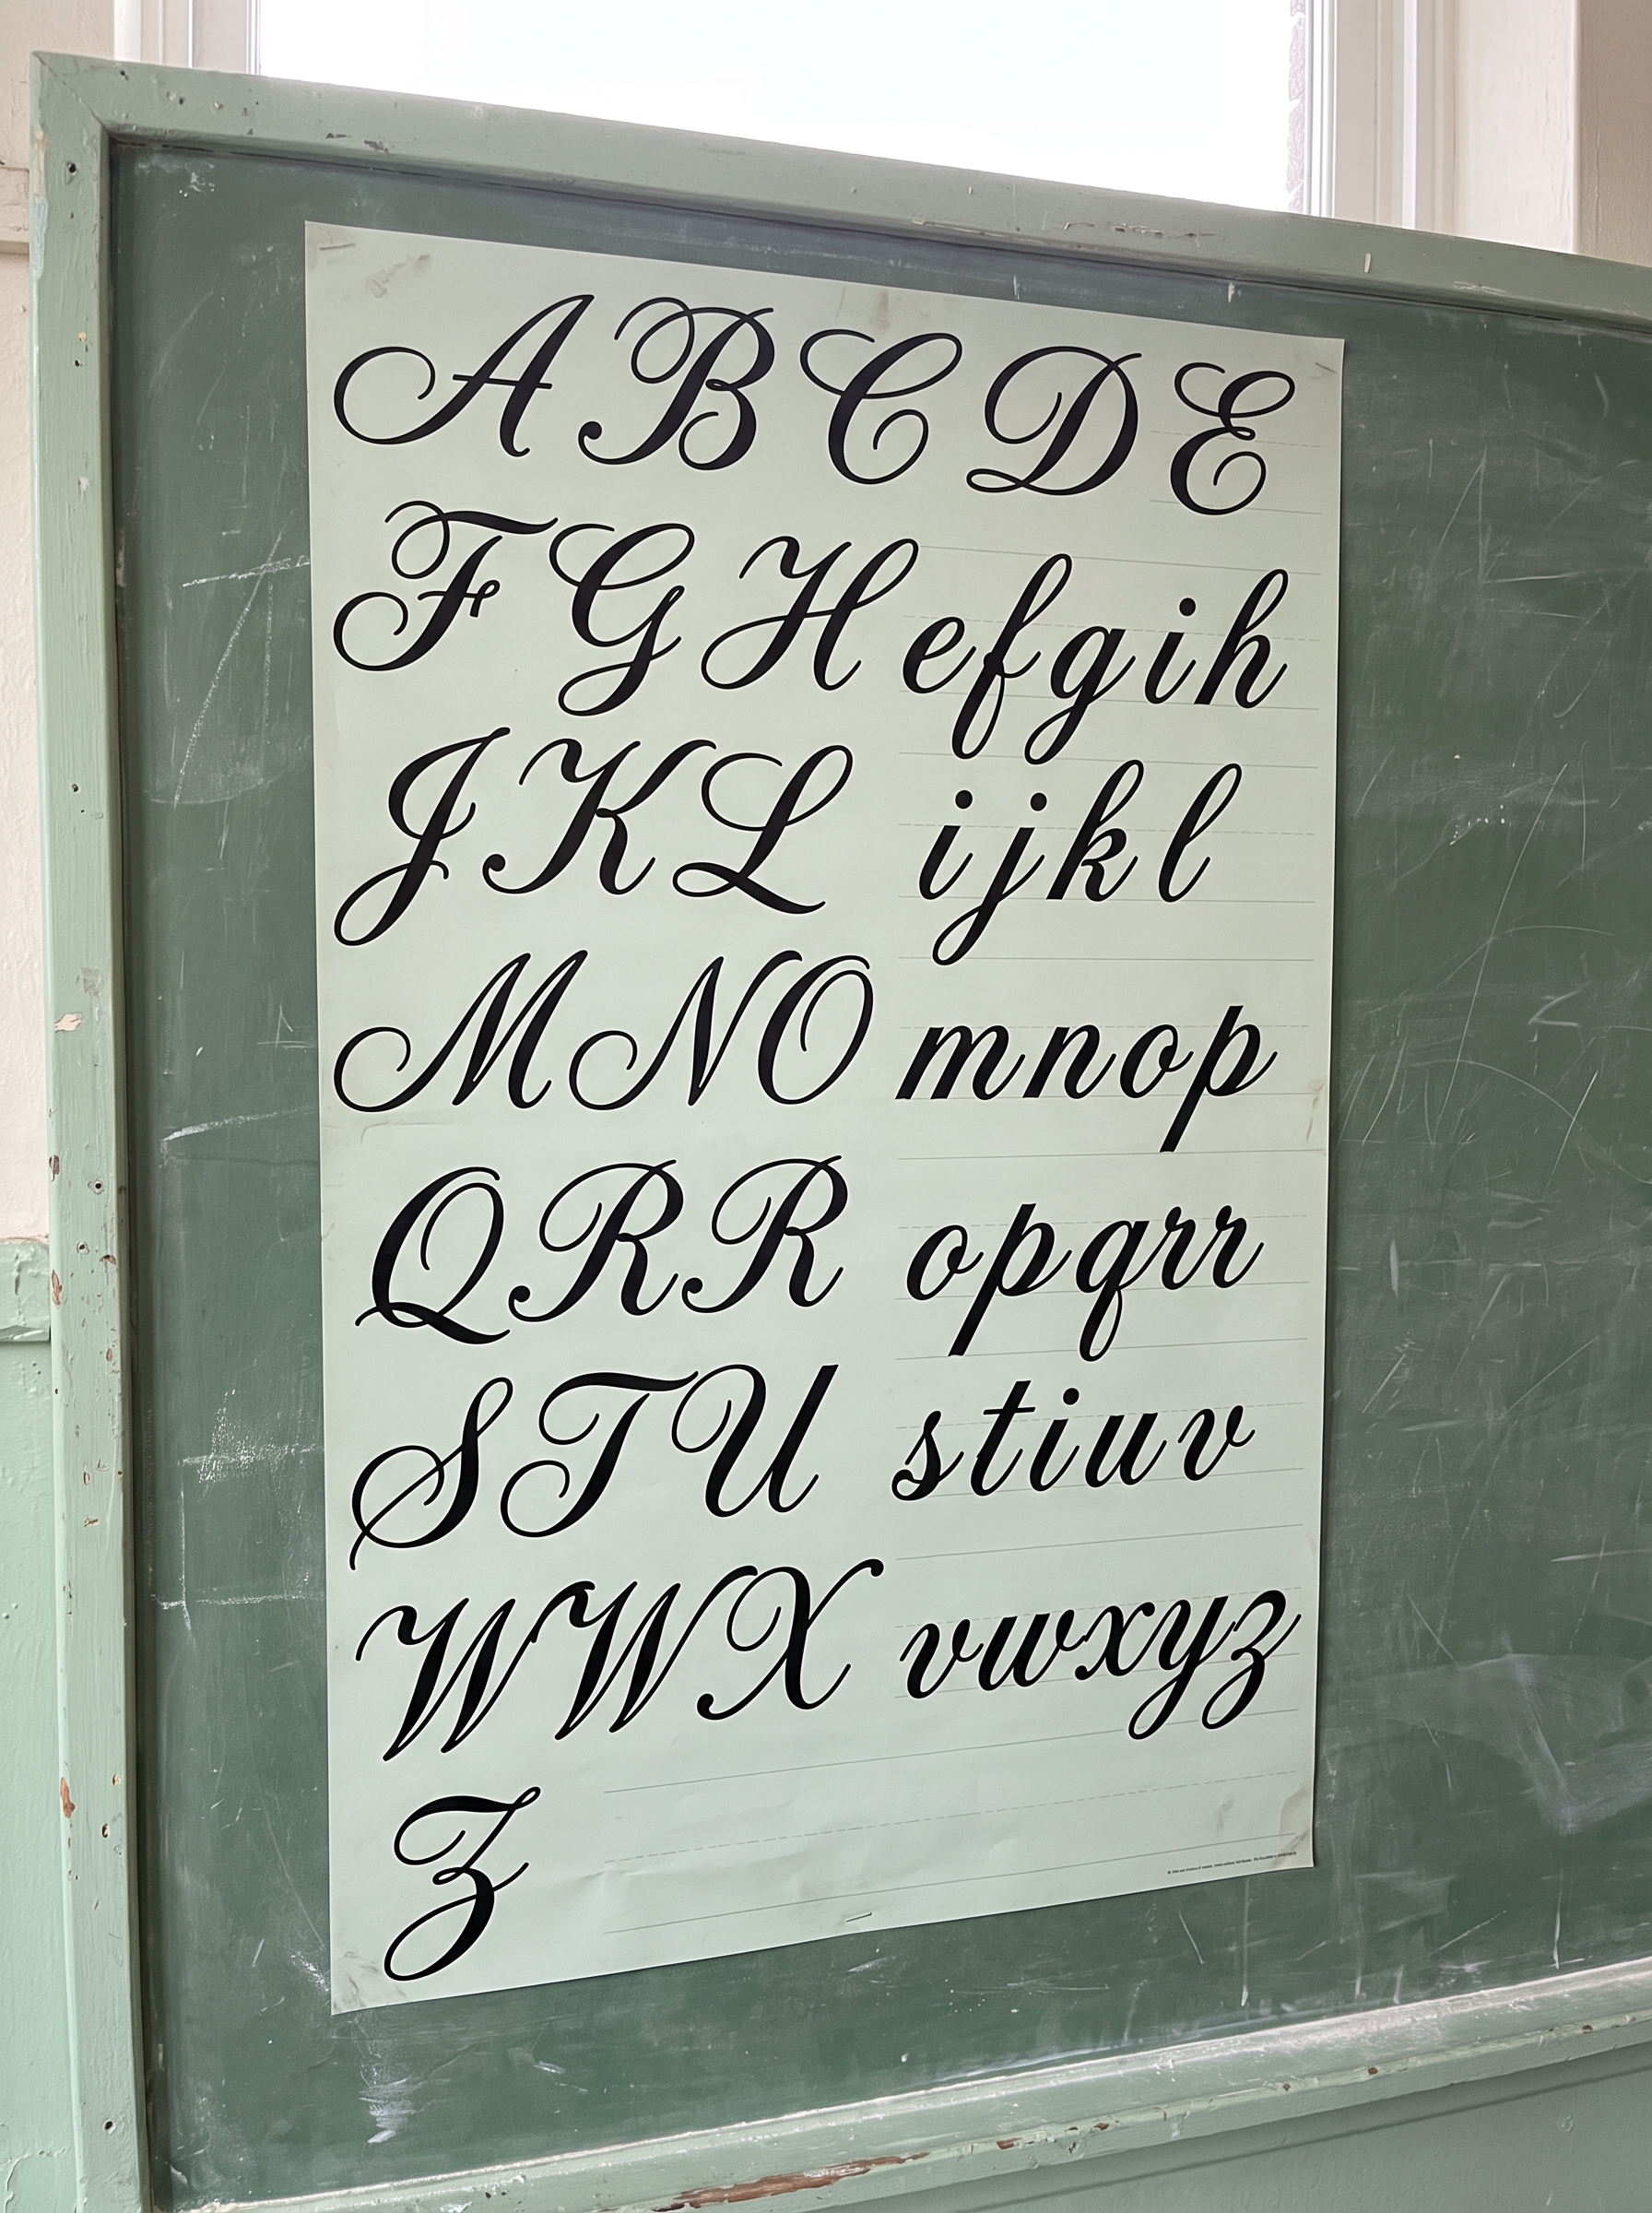 A B C D E
F G H e f g i h
J K L i j k l
M N O m n o p
Q R R o p q r r
S T U s t i u v
W W X v w x y z
Z